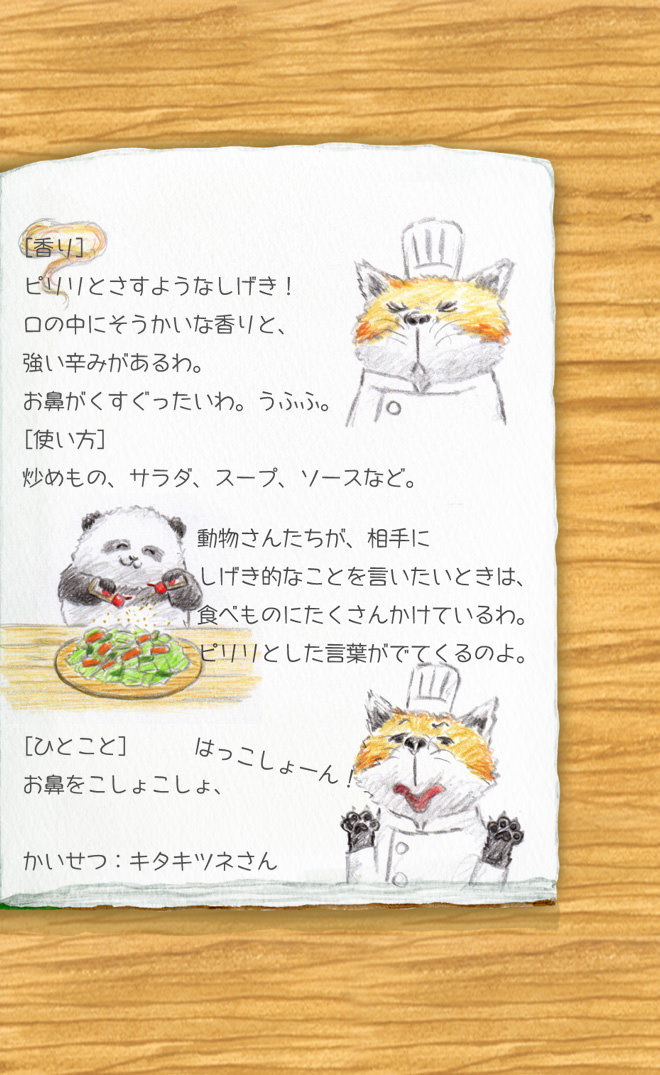 [香り]
ピリリとさすようなしげき！
口の中にそうかいな香りと、
強い辛みがあるわ。
お鼻がくすぐったいわ。うふふ。
[使い方]
炒めもの、サラダ、スープ、ソースなど。
動物さんたちが、相手に
しげき的なことを言いたいときは、
食べものにたくさんかけているわ。
ピリリとした言葉がでてくるのよ。
[ひとこと]
お鼻をこしょこしょ、
はっこしょーん！
かいせつ：キタキツネさん